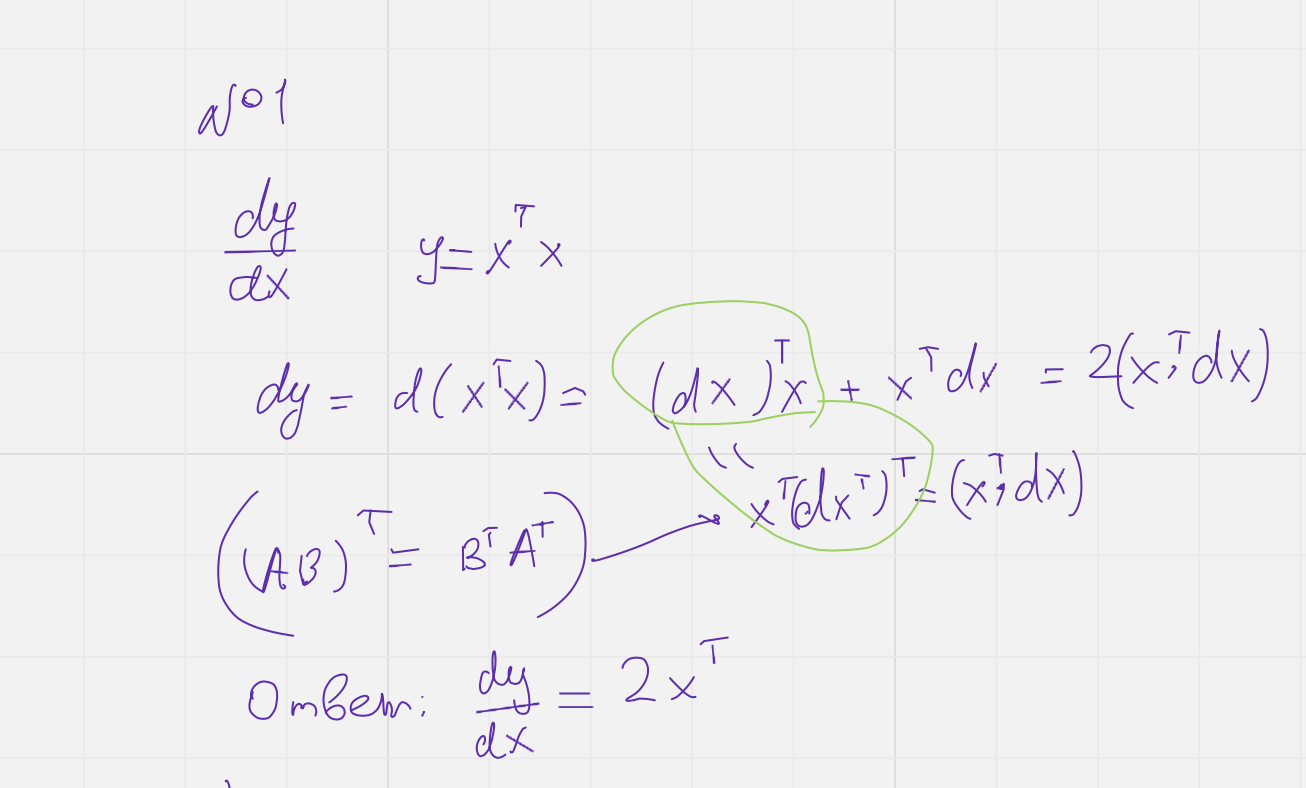 №1
dy/dx y = x^T x
dy = d(x^T x) = (dx)^T x + x^T dx = 2(x^T, dx)
x^T (dx^T)^T = (x^T, dx)
((AB)^T = B^T A^T)
Ответ: dy/dx = 2x^T